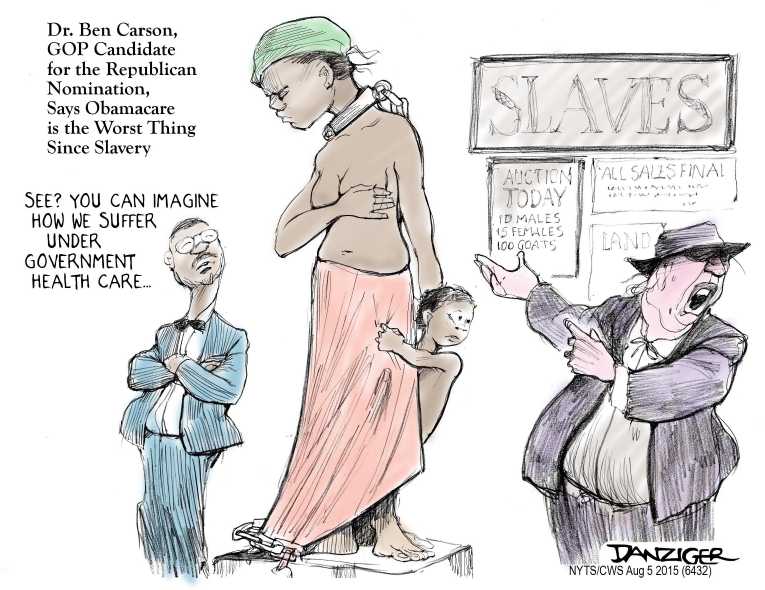 Dr. Ben Carson,
GOP Candidate
for the Republican
Nomination,
Says Obamacare
is the Worst Thing
Since Slavery
SEE? YOU CAN IMAGINE
HOW WE SUFFER
UNDER
GOVERNMENT
HEALTH CARE...
SLAVES
AUCTION
TODAY
10 MALES
15 FEMALES
100 GOATS
ALL SALES FINAL
LAND
DANZIGER
NYTS/CWS Aug 5 2015 (6432)